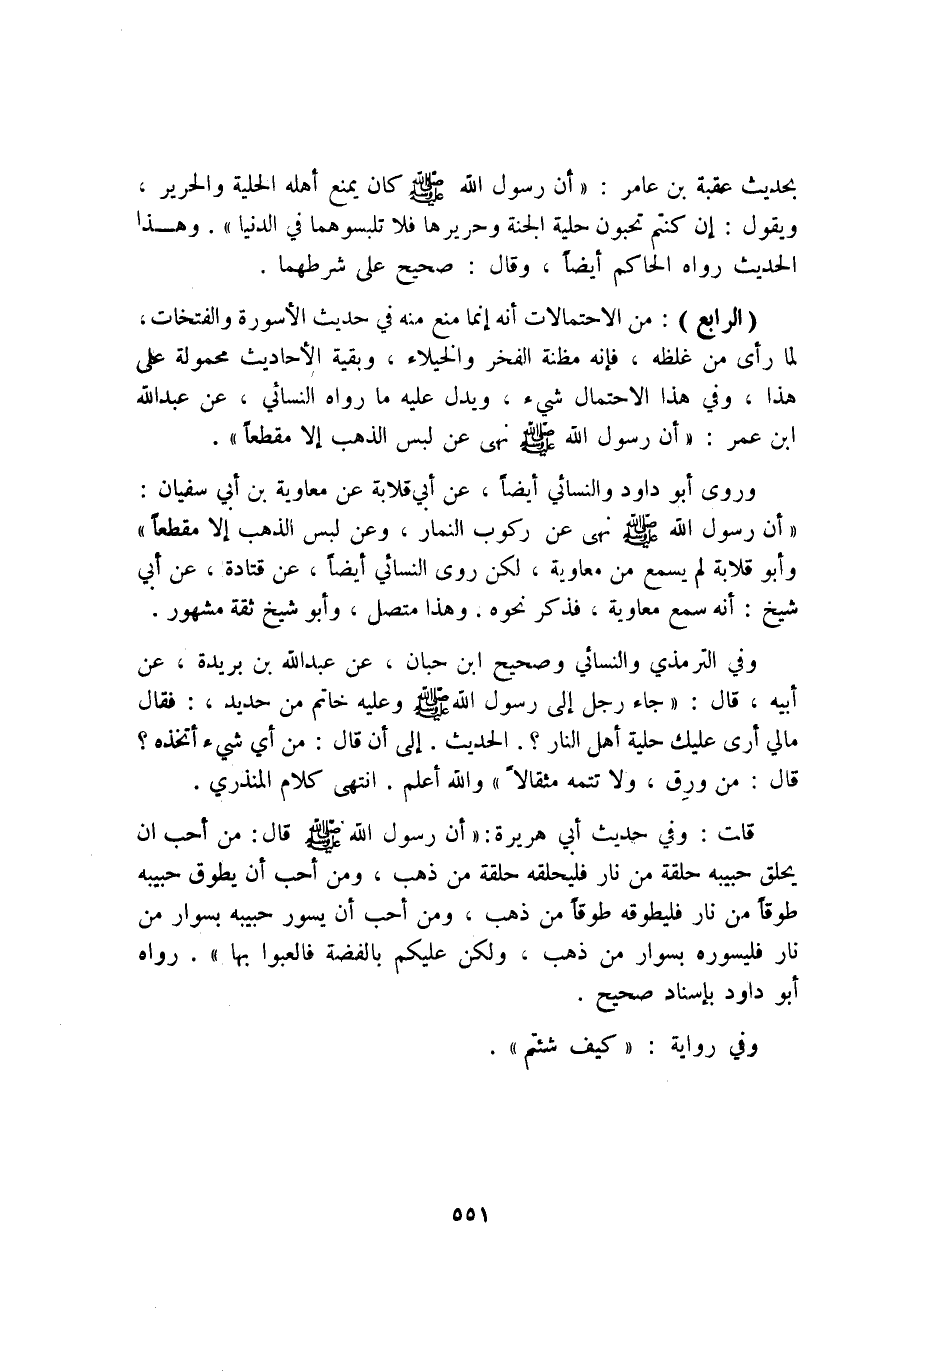 بحديث عقبة بن عامر : « أن رسول الله ﷺ كان يمنع أهله الحلية والحرير ،
ويقول : إن كنتم تحبون حلية الجنة وحريرها فلا تلبسوهما في الدنيا » . وهـــذا
الحديث رواه الحاكم أيضاً ، وقال : صحيح على شرطهما .
( الرابع ) : من الاحتمالات أنه إنما منع منه في حديث الأسورة والفتخات ،
لما رأى من غلظه ، فإنه مظنة الفخر والخيلاء ، وبقية الأحاديث محمولة على
هذا ، وفي هذا الاحتمال شيء ، ويدل عليه ما رواه النسائي ، عن عبدالله
ابن عمر : « أن رسول الله ﷺ نهى عن لبس الذهب إلا مقطعاً » .
وروى أبو داود والنسائي أيضاً ، عن أبي قلابة عن معاوية بن أبي سفيان :
« أن رسول الله ﷺ نهى عن ركوب النمار ، وعن لبس الذهب إلا مقطعاً »
وأبو قلابة لم يسمع من معاوية ، لكن روى النسائي أيضاً ، عن قتادة ، عن أبي
شيخ : أنه سمع معاوية ، فذكر نحوه . وهذا متصل ، وأبو شيخ ثقة مشهور .
وفي الترمذي والنسائي وصحيح ابن حبان ، عن عبدالله بن بريدة ، عن
أبيه ، قال : « جاء رجل إلى رسول الله ﷺ وعليه خاتم من حديد ، : فقال
مالي أرى عليك حلية أهل النار ؟ . الحديث . إلى أن قال : من أي شيء أتخذه ؟
قال : من ورِق ، ولا تتمه مثقالاً » والله أعلم . انتهى كلام المنذري .
قلت : وفي حديث أبي هريرة : « أن رسول الله ﷺ قال : من أحب ان
يحلق حبيبه حلقة من نار فليحلقه حلقة من ذهب ، ومن أحب أن يطوق حبيبه
طوقاً من نار فليطوقه طوقاً من ذهب ، ومن أحب أن يسور حبيبه بسوار من
نار فليسوره بسوار من ذهب ، ولكن عليكم بالفضة فالعبوا بها » . رواه
أبو داود بإسناد صحيح .
وفي رواية : « كيف شئتم » .
٥٥١